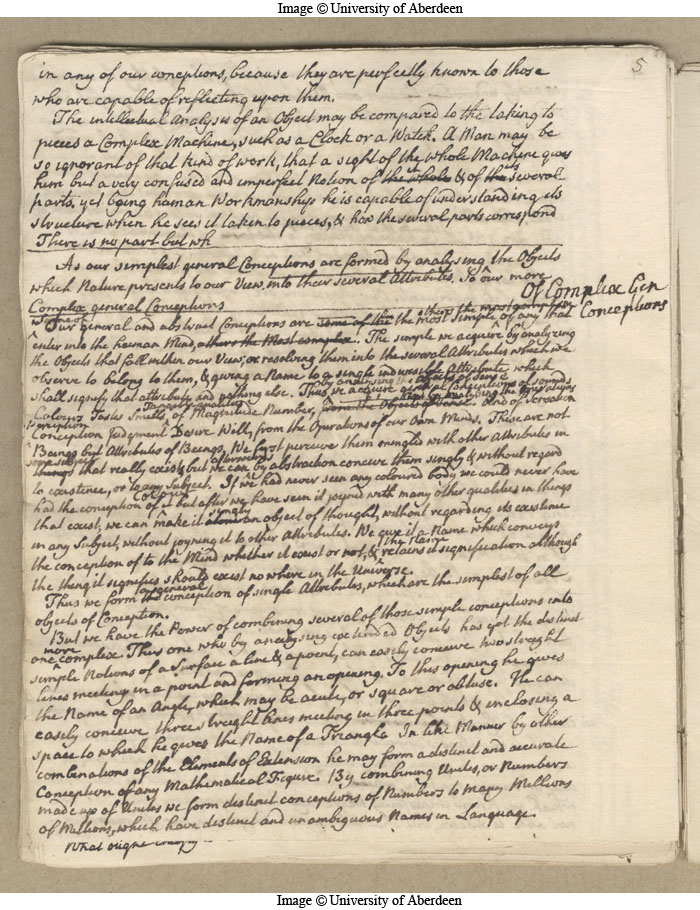 Image © University of Aberdeen
5
in any of our conceptions, because they are perfectly known to those
who are capable of reflecting upon them.
The intellectual Analysis of an Object may be compared to the taking to
pieces a Complex Machine, such as a Clock or a Watch. A Man may be
so ignorant of that kind of work, that a sight of the whole Machine gives
him but a very confused and imperfect Notion of the whole & of the several
parts, yet being human Workmanship he is capable of understanding its
structure when he sees it taken to pieces, & how the several parts correspond
There is no part but wh
As our simplest general Conceptions are formed by analysing the Objects
which Nature presents to our View, into their several Attributes. So our more
Complex general Conceptions
Of Complex Gen
Conceptions
Our general and abstract Conceptions are some of the the most simple of any that
enter into the human Mind, others the Most complex. The simple we acquire by analyzing
the Objects that fall within our View, or resolving them into the several Attributes which we
observe to belong to them, & giving a Name to a single indivisible Attribute, which
shall signify that attribute and nothing else. Thus we acquire general Conceptions of sound
Colours Tastes Smells, of Magnitude Number, And of Sensation
Perception
Conception Judgment Desire Will, from the Operations of our Own Minds. These are not
Beings but Attributes of Beings. We first perceive them mingled with other Attributes in
things that really exist, but we can by abstraction conceive them singly & without regard
to existence, or to any Subject. If we had never seen any coloured body we could never have
had the conception of Colour but after we have seen it joyned with many other qualities in things
that exist, we can make it singly an object of thought, without regarding its existence
in any Subject, without joyning it to other Attributes. We give it a Name which conveys
the conception of to the Mind whether it exist or not, & this Name retains its signification although
the thing it signifies should exist no where in the Universe.
Thus we form general conception of single Attributes, which are the simplest of all
objects of Conception.
But we have the Power of combining several of those simple conceptions into
one more complex. Thus one who by analysing extended Objects has got the distinct
simple Notions of a Surface a line & a point, can easily conceive two straight
lines meeting in a point and forming an opening. To this opening he gives
the Name of an Angle, which may be acute, or square or obtuse. He can
easily conceive three streight lines meeting in three points & inclosing a
space to which he gives the Name of a Triangle. In like Manner by other
combinations of the Elements of Extension he may form a distinct and accurate
Conception of any Mathematical Figure. By combining Unites, or Numbers
made up of Unites we form distinct conceptions of Numbers to many Millions
of Millions, which have distinct and unambiguous Names in Language.
What
Image © University of Aberdeen